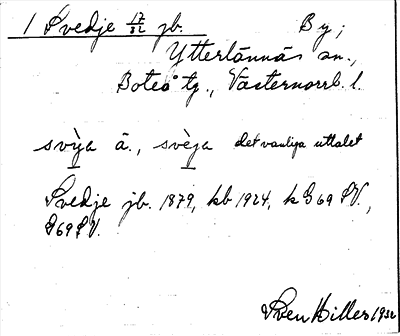 1 Svedje 17/32 jb. By;
Ytterlännäs sn.,
Boteå tg., Västernorrl. l.
svı̀ja ä., svèja det vanliga uttalet
Svedje jb. 1879, kb 1924, k G69 SV.,
G69 SV.
Sven Hiller 1932